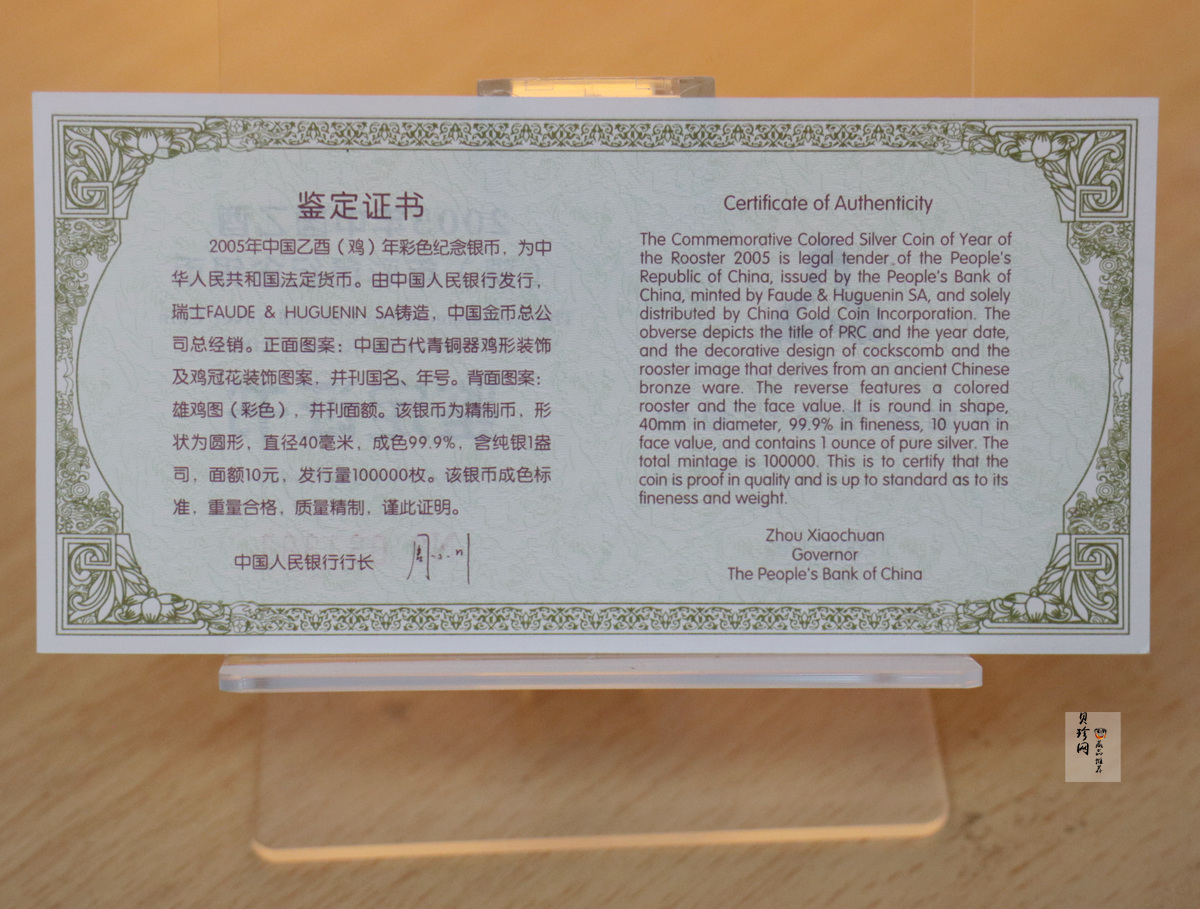 鉴定证书
2005年中国乙酉（鸡）年彩色纪念银币，为中
华人民共和国法定货币。由中国人民银行发行，
瑞士FAUDE & HUGUENIN SA铸造，中国金币总公
司总经销。正面图案：中国古代青铜器鸡形装饰
及鸡冠花装饰图案，并刊国名、年号。背面图案：
雄鸡图（彩色），并刊面额。该银币为精制币，形
状为圆形，直径40毫米，成色99.9%，含纯银1盎
司，面额10元，发行量100000枚。该银币成色标
准，重量合格，质量精制，谨此证明。
中国人民银行行长
Certificate of Authenticity
The Commemorative Colored Silver Coin of Year of
the Rooster 2005 is legal tender of the People's
Republic of China, issued by the People's Bank of
China, minted by Faude & Huguenin SA, and solely
distributed by China Gold Coin Incorporation. The
obverse depicts the title of PRC and the year date,
and the decorative design of cockscomb and the
rooster image that derives from an ancient Chinese
bronze ware. The reverse features a colored
rooster and the face value. It is round in shape,
40mm in diameter, 99.9% in fineness, 10 yuan in
face value, and contains 1 ounce of pure silver. The
total mintage is 100000. This is to certify that the
coin is proof in quality and is up to standard as to its
fineness and weight.
Zhou Xiaochuan
Governor
The People's Bank of China
贝珍网